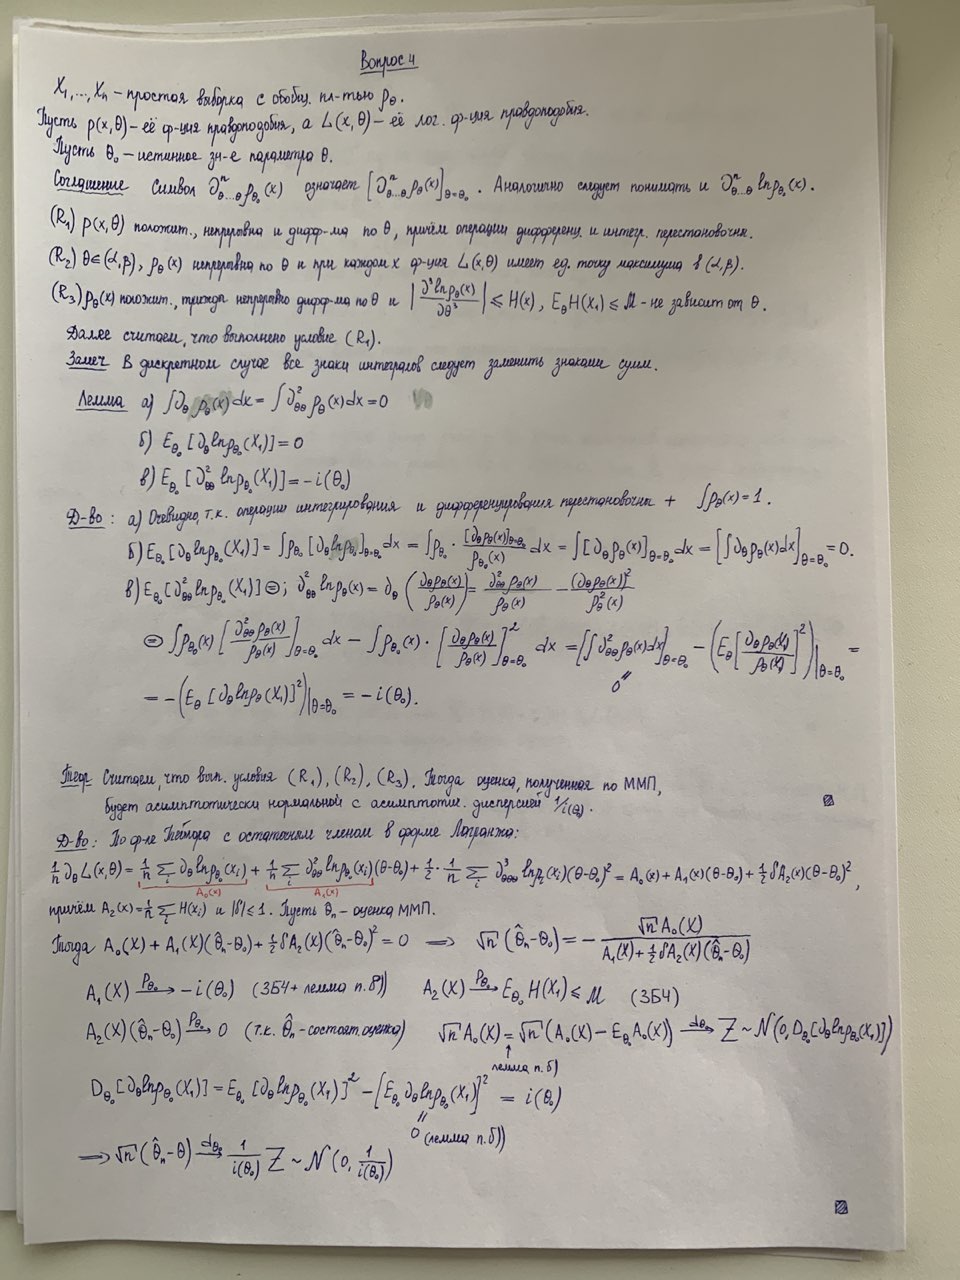 Вопрос 4
X₁,...,Xₙ – простая выборка с обобщ. пл-тью ρ_θ.
Пусть p(x,θ) – её ф-ция правдоподобия, а L(x,θ) – её лог. ф-ция правдоподобия.
Пусть θ₀ – истинное зн-е параметра θ.
Соглашение Символ ∂ⁿ_{θ...θ} ρ_{θ₀}(x) означает [∂ⁿ_{θ...θ} ρ_θ(x)]_{θ=θ₀}. Аналогично следует понимать и ∂ⁿ_{θ...θ} ln ρ_{θ₀}(x).
(R₁) p(x,θ) положит., непрерывна и дифф-ма по θ, причём операции дифференц. и интегр. перестановочн.
(R₂) θ∈(α,β), ρ_θ(x) непрерывна по θ и при каждом x ф-ция L(x,θ) имеет ед. точку максимума в (α,β).
(R₃) ρ_θ(x) положит., трижды непрерывно дифф-ма по θ и |∂³ ln ρ_θ(x)/∂θ³| ≤ H(x), E_θ H(X₁) ≤ M – не зависит от θ.
Далее считаем, что выполнено условие (R₁).
Замеч В дискретном случае все знаки интегралов следует заменить знаками сумм.
Лемма а) ∫∂_θ ρ_θ(x) dx = ∫∂²_{θθ} ρ_θ(x) dx = 0
б) E_{θ₀}[∂_θ ln ρ_{θ₀}(X₁)] = 0
в) E_{θ₀}[∂²_{θθ} ln ρ_{θ₀}(X₁)] = -i(θ₀)
Д-во: а) Очевидно, т.к. операции интегрирования и дифференцирования перестановочн + ∫ρ_θ(x) = 1.
б) E_{θ₀}[∂_θ ln ρ_{θ₀}(X₁)] = ∫ρ_{θ₀} [∂_θ ln ρ_θ]_{θ=θ₀} dx = ∫ρ_{θ₀} · [∂_θ ρ_θ(x)]_{θ=θ₀}/ρ_{θ₀}(x) dx = ∫[∂_θ ρ_θ(x)]_{θ=θ₀} dx = [∫∂_θ ρ_θ(x) dx]_{θ=θ₀} = 0.
в) E_{θ₀}[∂²_{θθ} ln ρ_{θ₀}(X₁)] ⊜; ∂²_{θθ} ln ρ_θ(x) = ∂_θ (∂_θ ρ_θ(x)/ρ_θ(x)) = ∂²_{θθ} ρ_θ(x)/ρ_θ(x) - (∂_θ ρ_θ(x))²/ρ²_θ(x)
⊜ ∫ρ_{θ₀}(x) [∂²_{θθ} ρ_θ(x)/ρ_θ(x)]_{θ=θ₀} dx - ∫ρ_{θ₀}(x) · [∂_θ ρ_θ(x)/ρ_θ(x)]²_{θ=θ₀} dx = [∫∂²_{θθ} ρ_θ(x) dx]_{θ=θ₀} - (E_θ[∂_θ ρ_θ(X₁)/ρ_θ(X₁)]²)|_{θ=θ₀} =
0
= -(E_θ [∂_θ ln ρ_θ(X₁)]²)|_{θ=θ₀} = -i(θ₀).
Теор Считаем, что вып. условия (R₁), (R₂), (R₃). Тогда оценка, полученная по ММП,
будет асимптотически нормальной с асимптотич. дисперсией 1/i(θ₀).
Д-во: По ф-ле Тейлора с остаточным членом в форме Лагранжа:
1/n ∂_θ L(x,θ) = 1/n Σ_i ∂_θ ln ρ_{θ₀}(x_i) + 1/n Σ_i ∂²_{θθ} ln ρ_{θ₀}(x_i)(θ-θ₀) + 1/2 · 1/n Σ_i ∂³_{θθθ} ln ρ_ξ(x_i)(θ-θ₀)² = A₀(x) + A₁(x)(θ-θ₀) + 1/2 δA₂(x)(θ-θ₀)²,
A₀(x) A₁(x)
причём A₂(x) = 1/n Σ_i H(x_i) и |δ| ≤ 1. Пусть θ̂ₙ – оценка ММП.
Тогда A₀(X) + A₁(X)(θ̂ₙ-θ₀) + 1/2 δA₂(X)(θ̂ₙ-θ₀)² = 0 ⟹ √n (θ̂ₙ-θ₀) = - √n A₀(X)/(A₁(X) + 1/2 δA₂(X)(θ̂ₙ-θ₀))
A₁(X) →^{P_{θ₀}} -i(θ₀) (ЗБЧ + лемма п. в)) A₂(X) →^{P_{θ₀}} E_{θ₀} H(X₁) ≤ M (ЗБЧ)
A₂(X)(θ̂ₙ-θ₀) →^{P_{θ₀}} 0 (т.к. θ̂ₙ – состоят. оценка) √n A₀(X) = √n (A₀(X) - E_{θ₀} A₀(X)) →^{d_{θ₀}} Z ~ N(0, D_{θ₀}[∂_θ ln ρ_{θ₀}(X₁)])
↑
лемма п. б)
D_{θ₀}[∂_θ ln ρ_{θ₀}(X₁)] = E_{θ₀}[∂_θ ln ρ_{θ₀}(X₁)]² - [E_{θ₀} ∂_θ ln ρ_{θ₀}(X₁)]² = i(θ₀)
0 (лемма п. б))
⟹ √n (θ̂ₙ-θ) →^{d_{θ₀}} 1/i(θ₀) Z ~ N(0, 1/i(θ₀))